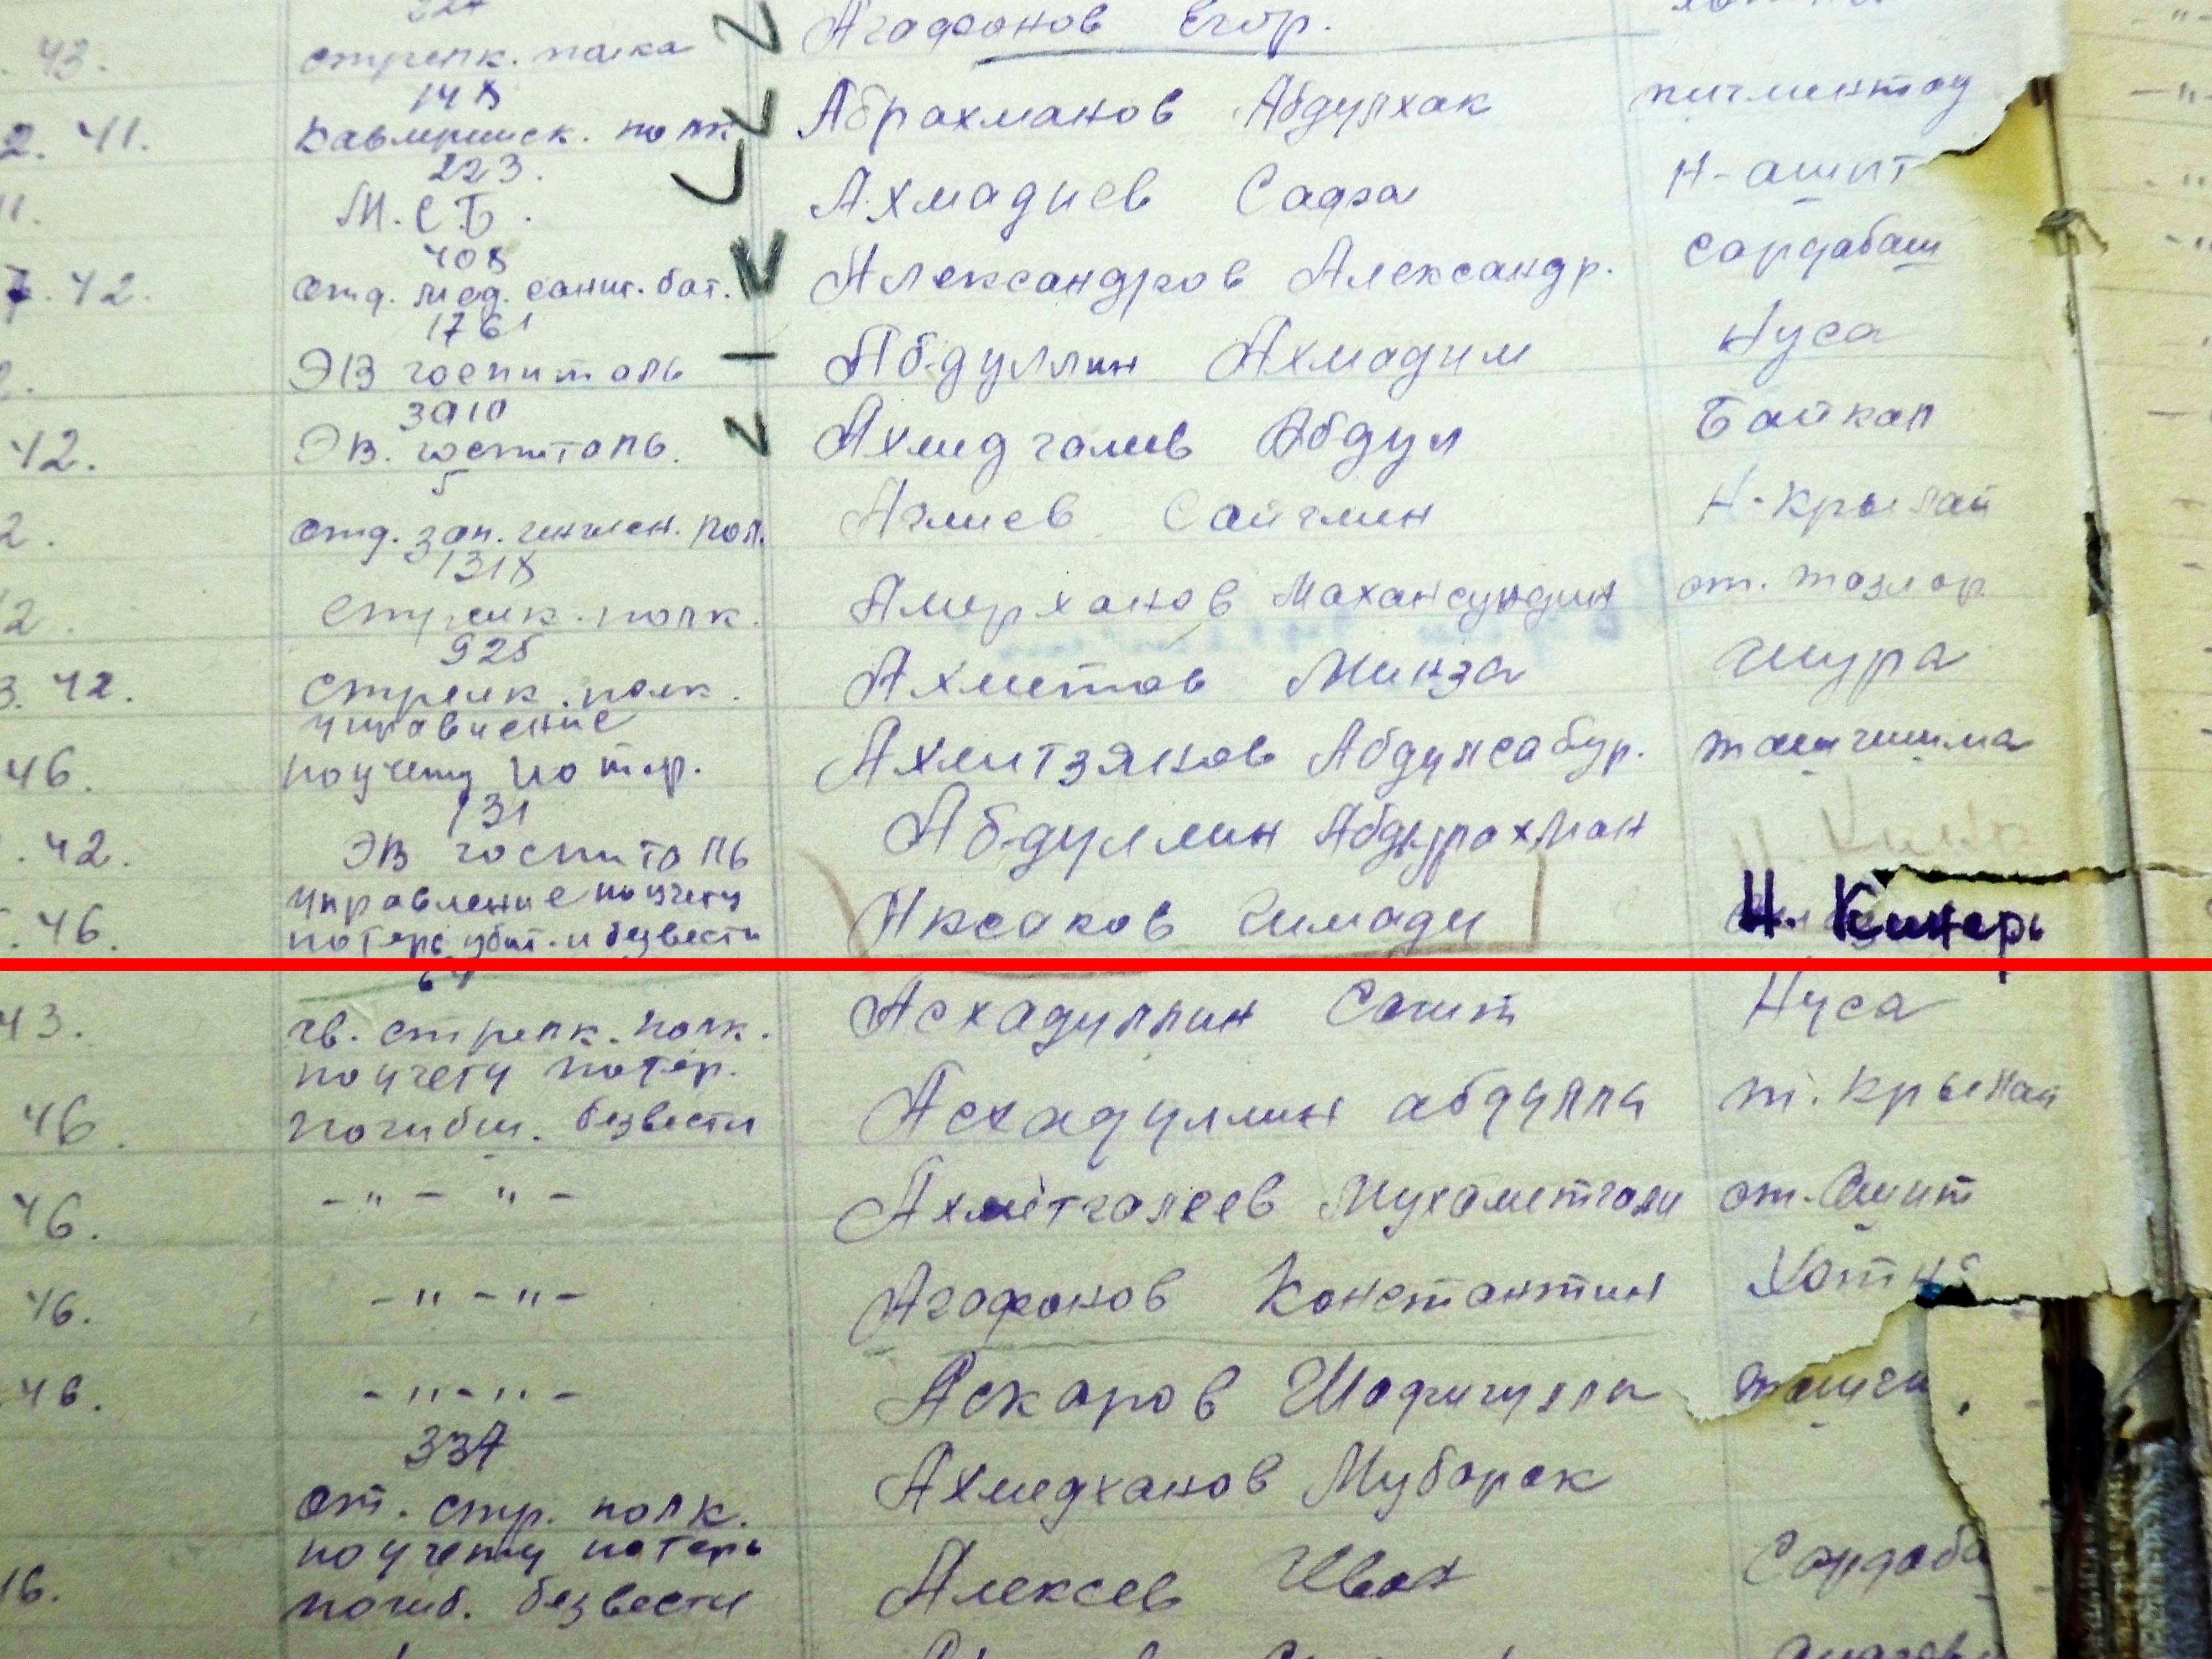 Агафонов Егор.
43. стрелк. полка
148
2. 41. Кавлерийск. полк Абрахманов Абдулхак
223.
М.С.Б. Ахмадиев Сафа Н-ашит
408
42. отд. мед. санит. бат. Александров Александр. Сардабаш
1761
ЭВ госпиталь Абдуллин Ахмадим Нуса
3910
42. ЭВ. госпиталь. Ахмидгалиев Абдул Байкал
5
2. отд. зап. инжен. пол. Аглиев Н-Крылай
1318
2. Стрелк. полк. Амерханов
925
3. 42. стрелк. полк. Ахметов Минза Шура
управление
46. по учету потер. Ахметзянов Абдулсабур.
131
42. ЭВ госпиталь Абдуллин Абдурахман
управление по учету
46. потерь убит. и безвести Аксаков Гимади Н. Кинерь
43. гв. стрелк. полк. Асхадуллин Сагит Нуса
по учету потер.
46. погибш. безвести Асхадуллин абдулла т. Крылай
46. -"- "- Ахметгалеев Мухаметгали от. Ашит
46. -"-"- Агафонов Константин Хотн
46. -"-"- Аскаров Шафигулла
337
от. стр. полк. Ахмедханов Мубарак
по учету потерь
16. погиб. безвести Алексев Иван Сардаба